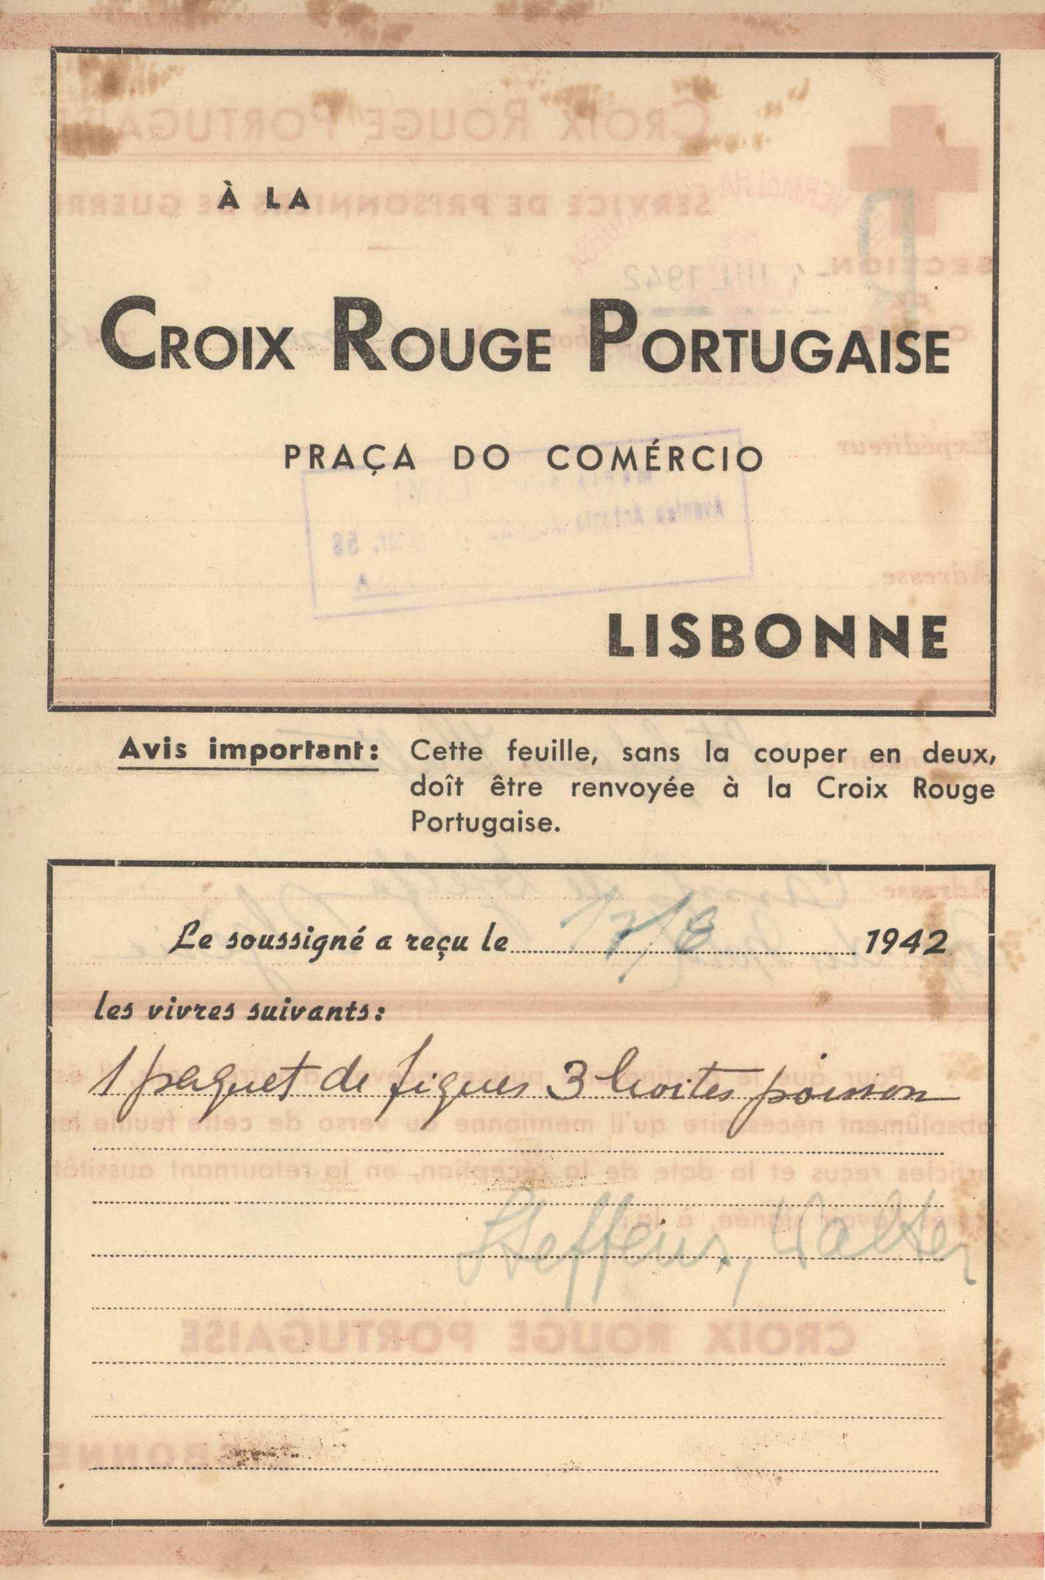 À LA
CROIX ROUGE PORTUGAISE
PRAÇA DO COMÉRCIO
LISBONNE
Avis important: Cette feuille, sans la couper en deux,
doît être renvoyée à la Croix Rouge
Portugaise.
Le soussigné a reçu le 17/8 1942
les vivres suivants:
1 paquet de figues 3 boites poisson
Steffens, Walter